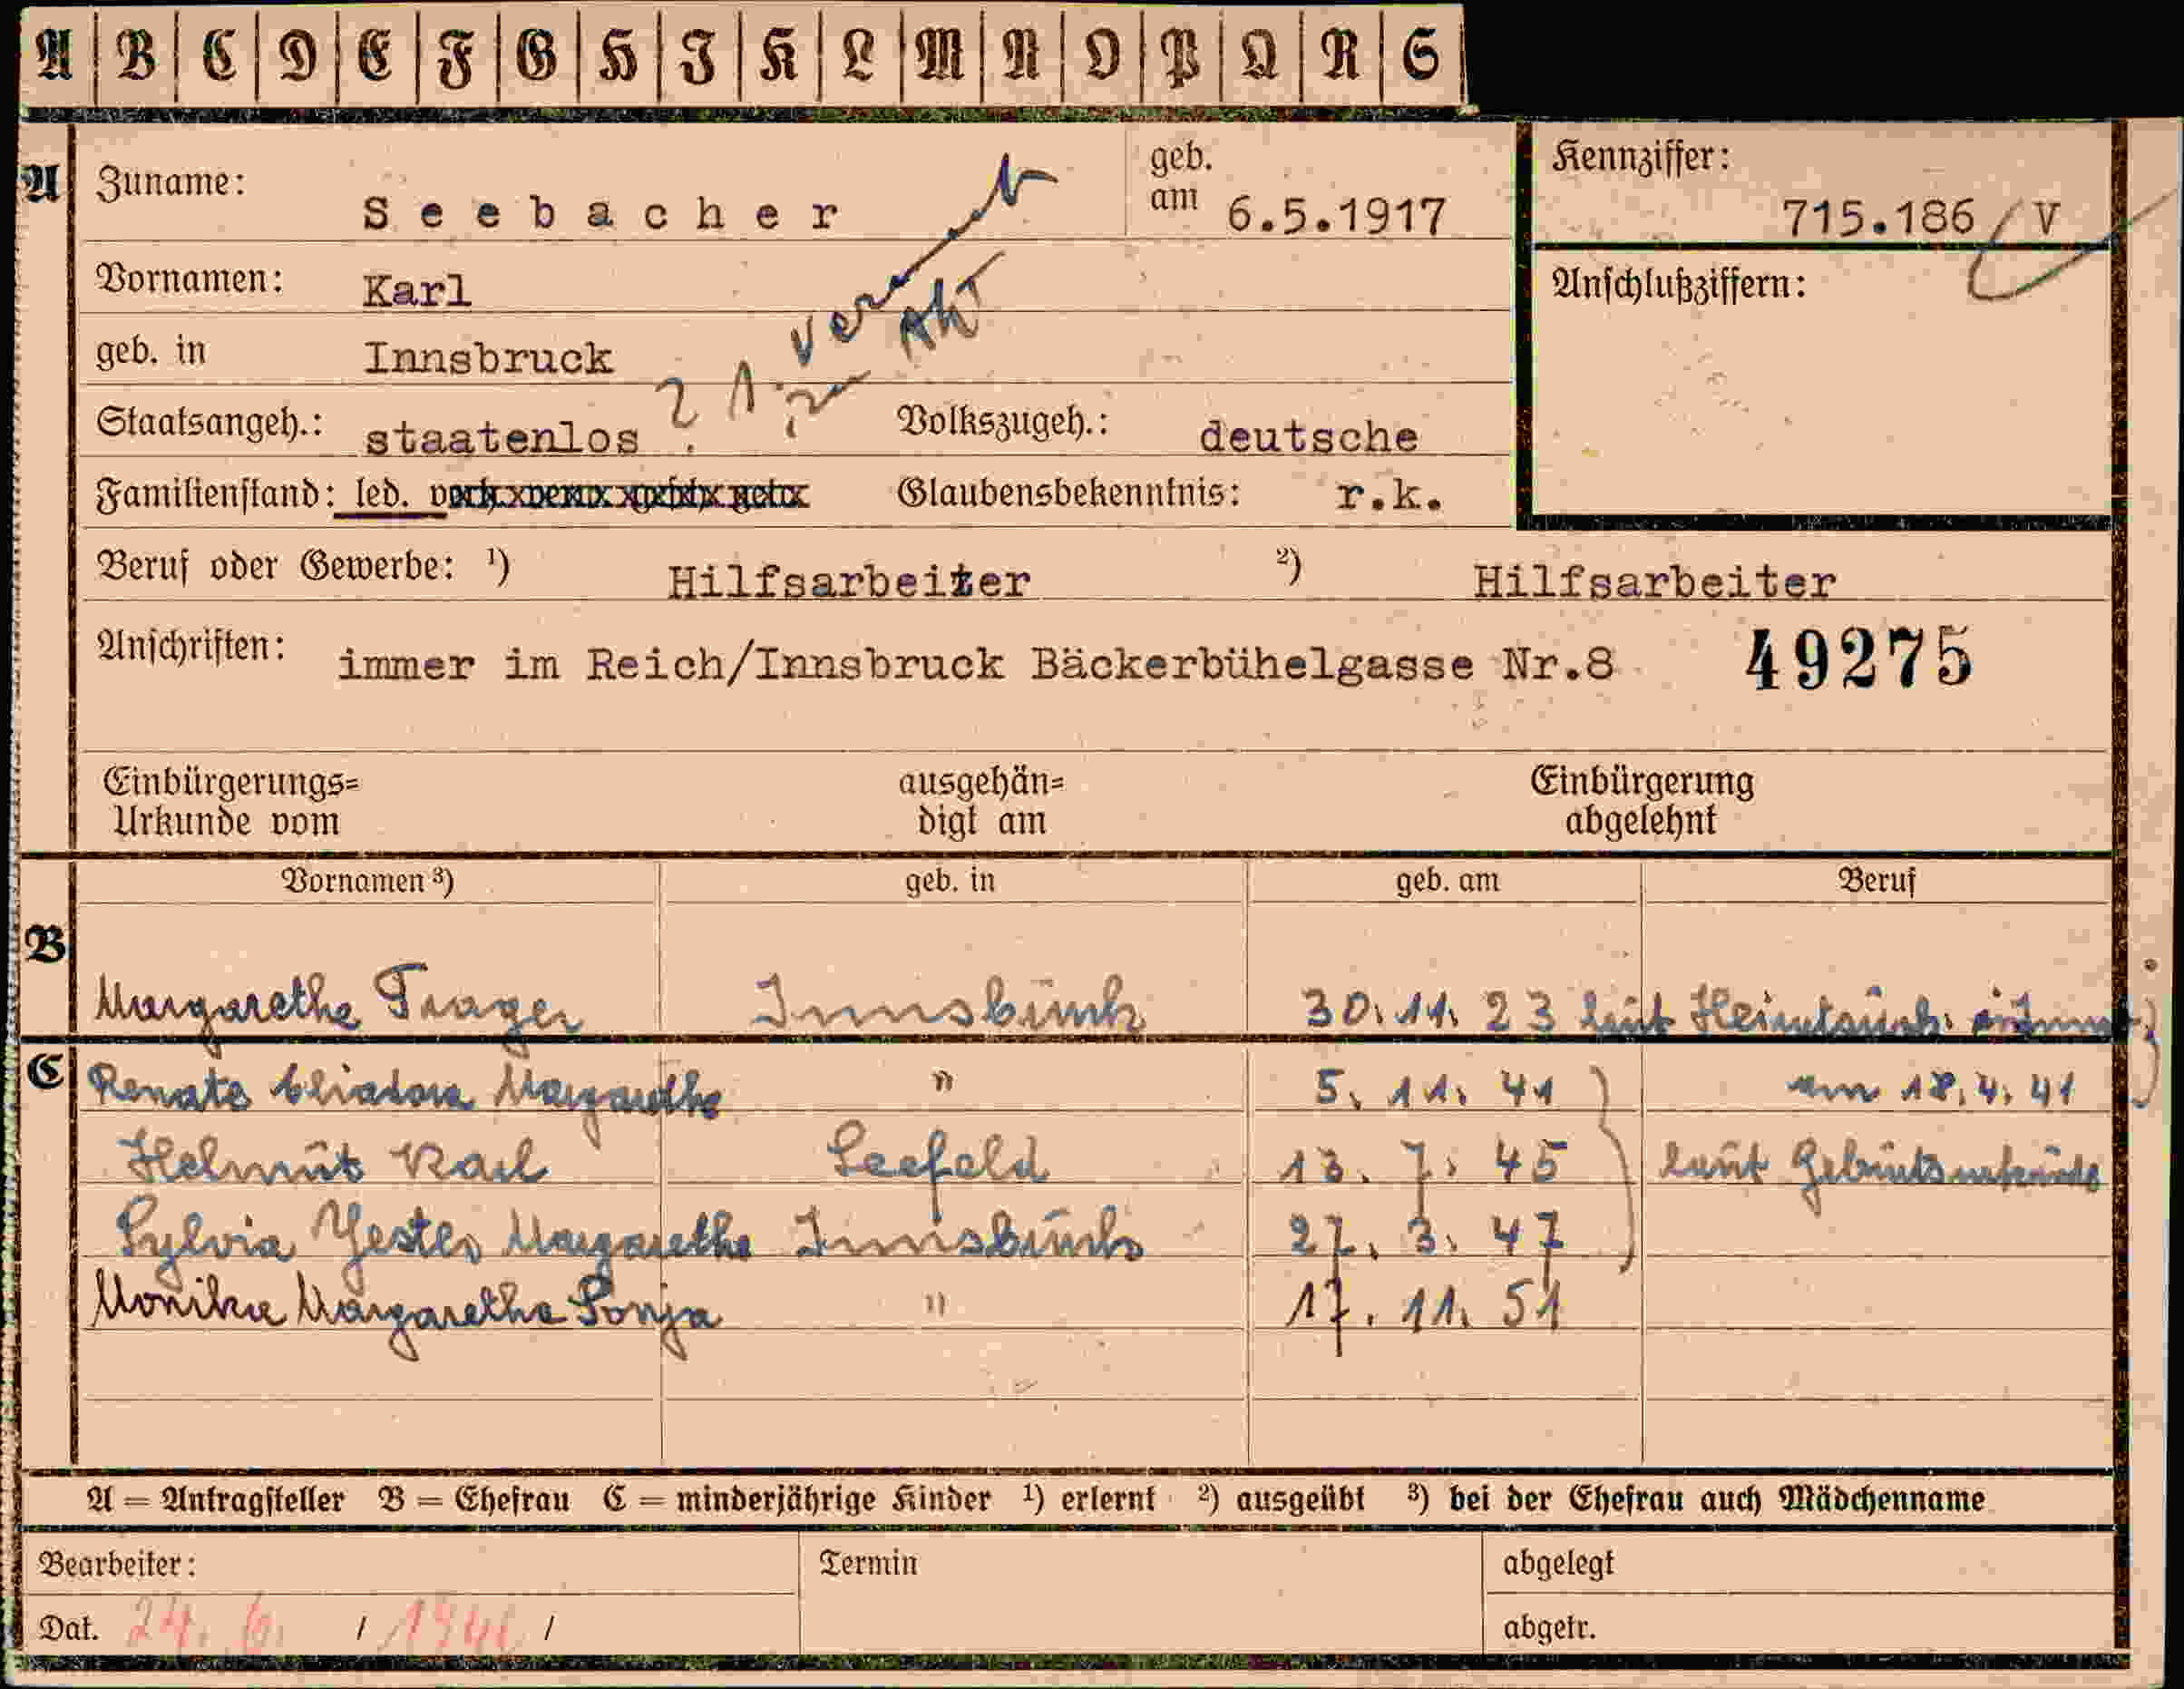 A B C D E F G H I K L M N O P Q R S
A Zuname: Seebacher geb. am 6.5.1917 Kennziffer: 715.186 / V
Vornamen: Karl Anschlußziffern:
geb. in Innsbruck
Akt
Staatsangeh.: staatenlos ? Volkszugeh.: deutsche
Familienstand: led. Glaubensbekenntnis: r.k.
Beruf oder Gewerbe: 1) Hilfsarbeiter 2) Hilfsarbeiter
Anschriften: immer im Reich/Innsbruck Bäckerbühelgasse Nr.8 49275
Einbürgerungs= ausgehän= Einbürgerung
Urkunde vom digt am abgelehnt
Vornamen 3) geb. in geb. am Beruf
B
Margarethe Trager Innsbruck 30.11.23 laut
C Renate Margarethe " 5.11.41 am 18.4.41
Helmut Karl Seefeld 13.7.45 laut Geburtsurkunde
Sylvia Margarethe Innsbruck 27.3.47
Monika Margaretha Sonja " 17.11.51
A = Antragsteller B = Ehefrau C = minderjährige Kinder 1) erlernt 2) ausgeübt 3) bei der Ehefrau auch Mädchenname
Bearbeiter: Termin abgelegt
Dat. 24. 6. / / abgetr.